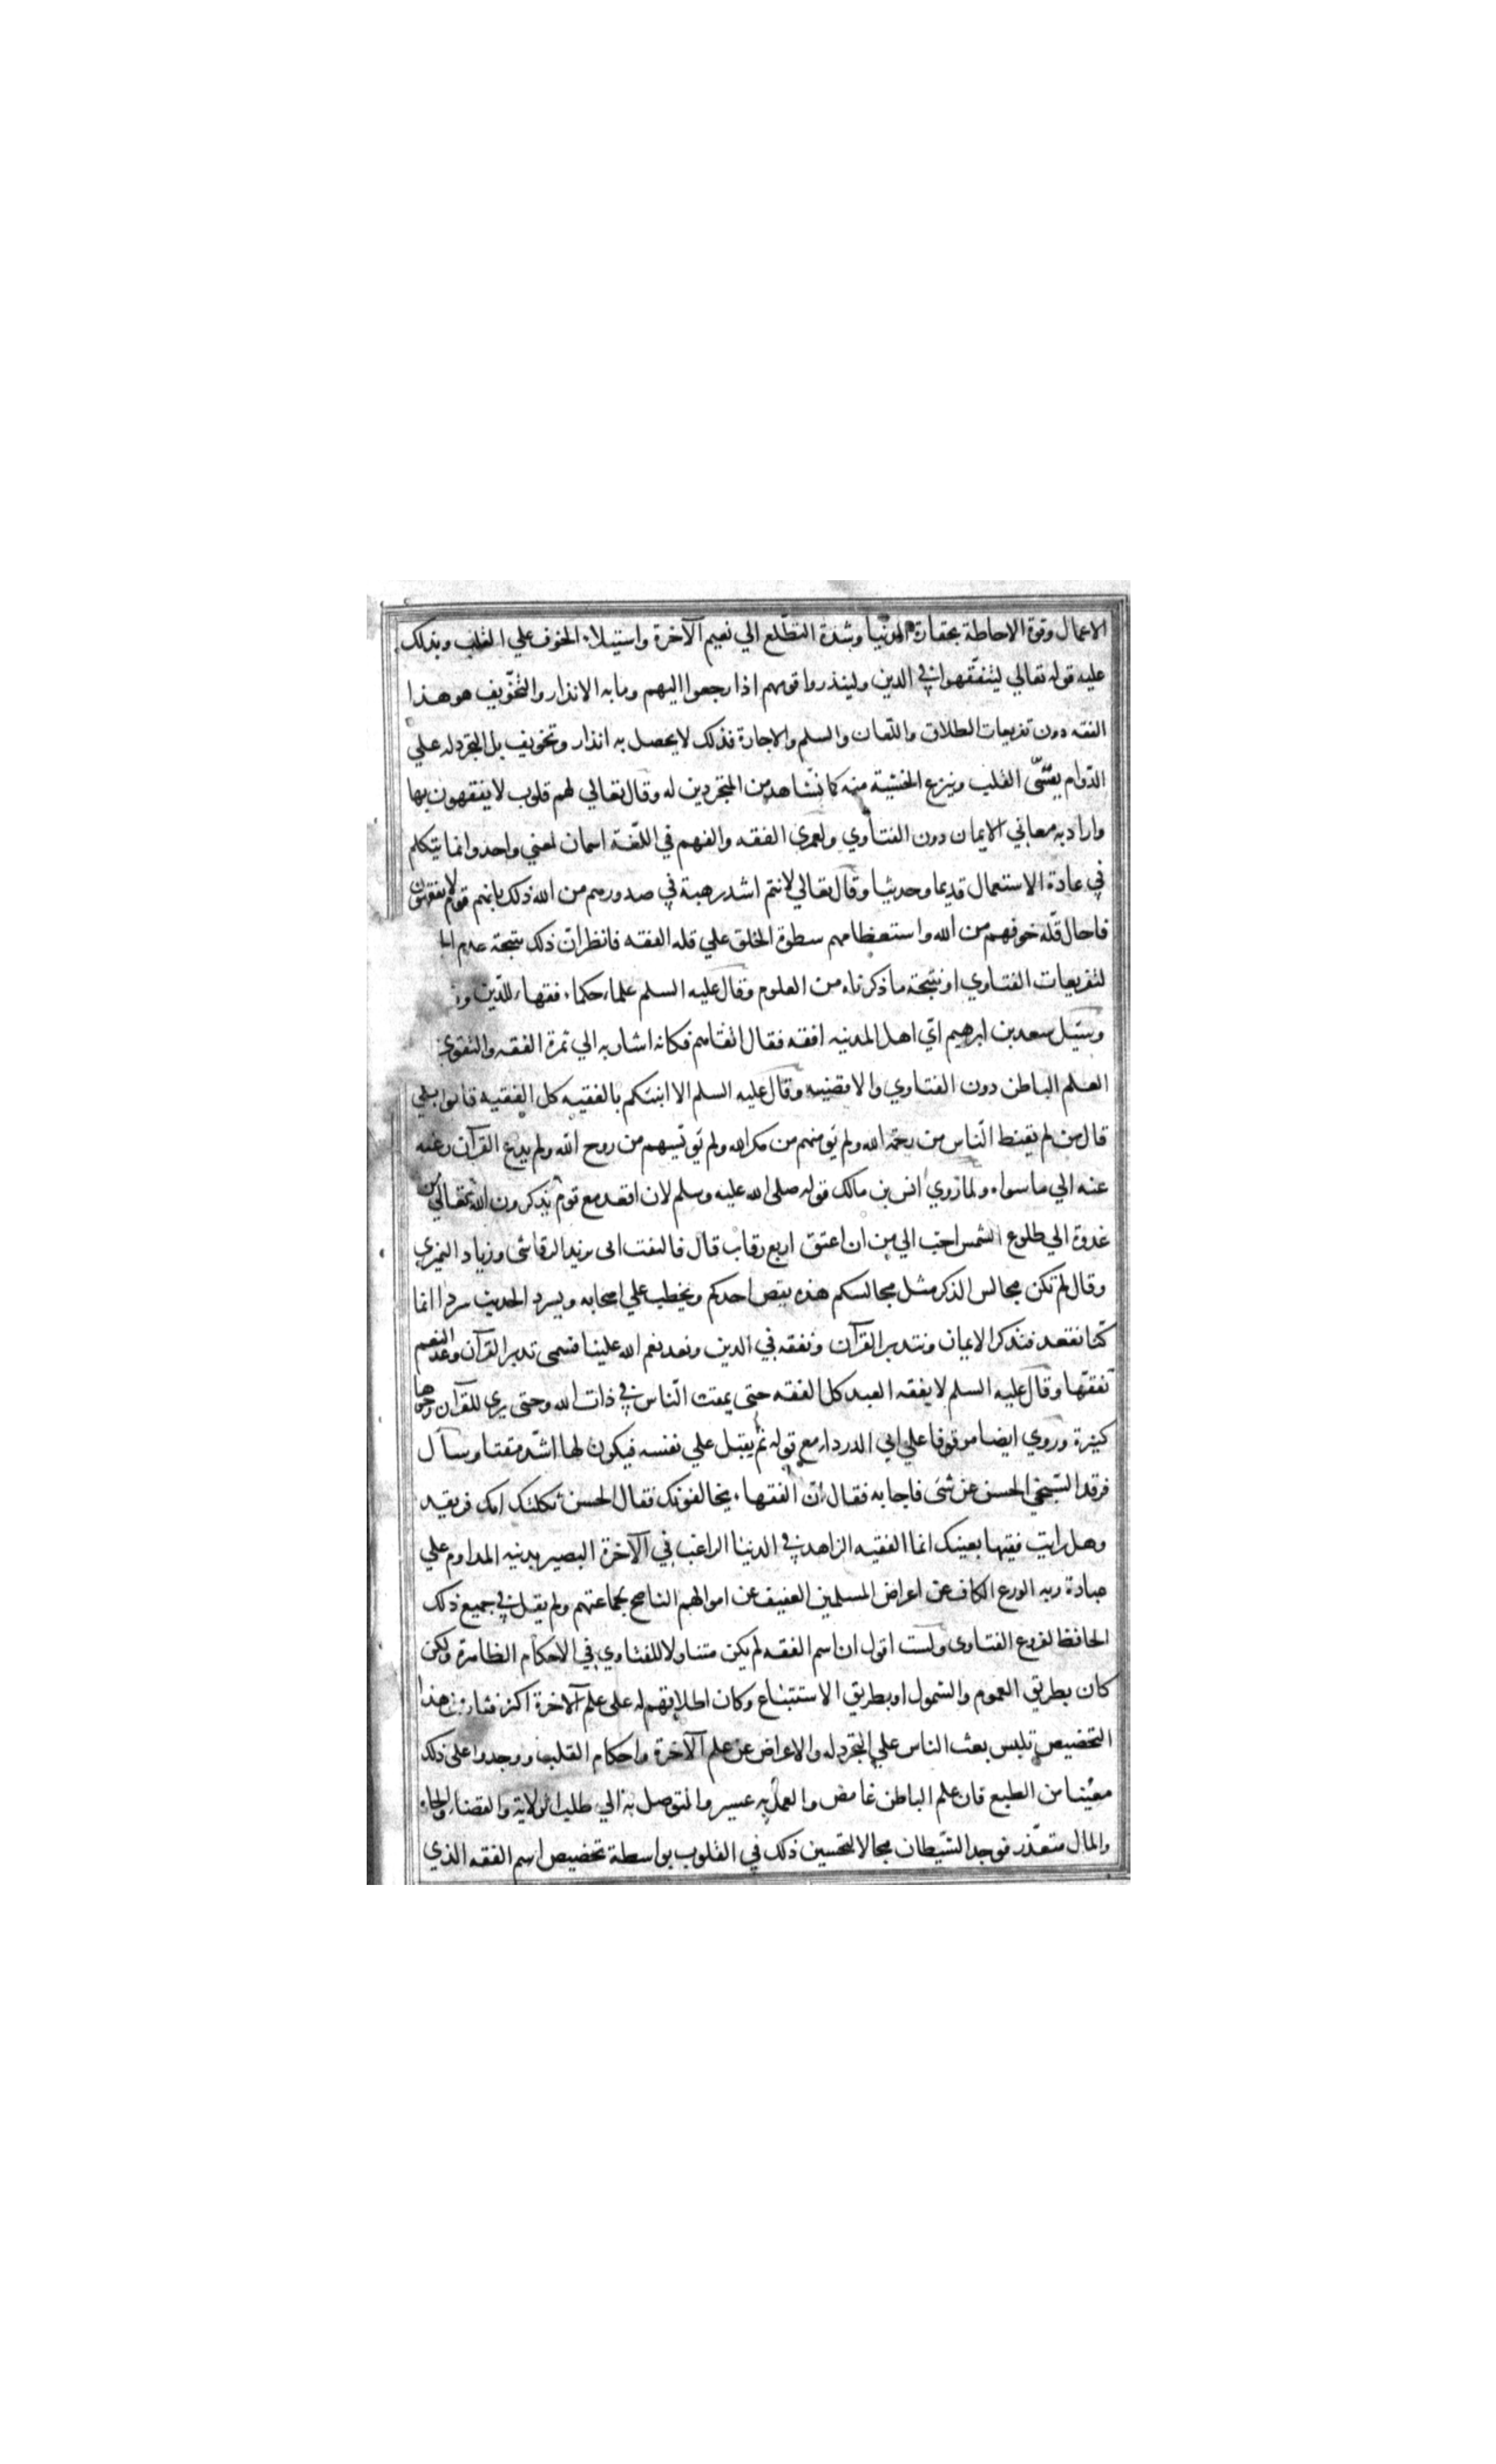 الاعمال وقوة الاحاطة بحقارة الدنيا وشدة التطلع الي نعيم الآخرة واستيلاء الخوف علي القلب ويدلك
عليه قوله تعالي ليتفقهوا في الدين ولينذروا قومهم اذا رجعوا اليهم وما به الانذار والتخويف هو هذا
الفقه دون تفريعات الطلاق واللعان والسلم والاجارة فذلك لا يحصل به انذار وتخويف بل التجرد له علي
الدوام يقسي القلب وينزع الخشية منه كما نشاهد من المتجردين له وقال تعالي لهم قلوب لا يفقهون بها
واراد به معاني الايمان دون الفتاوي ولعمري الفقه والفهم في اللغة اسمان لمعني واحد وانما يتكلم
في عادة الاستعمال قديما وحديثا وقال تعالي لانتم اشد رهبة في صدورهم من الله ذلك بانهم قوم لا يفقهون
فاحال قلة خوفهم من الله واستعظامهم سطوة الخلق علي قله الفقه فانظر ان ذلك نتيجة عدم
لتفريعات الفتاوي او نتيجة ما ذكرناه من العلوم وقال عليه السلم علماء حكماء فقهاء للذين
وسئيل سعد بن ابرهيم اي اهل المدينه افقه فقال اتقاهم فكانه اشار به الي ثمرة الفقه والتقوي
العلم الباطن دون الفتاوي والاقضيه وقال عليه السلم الا انبئكم بالفقيه كل الفقيه قالوا بلي
قال من لم يقنط الناس من رحمة الله ولم يؤمنهم من مكر الله ولم يؤيسهم من روح الله ولم يدع القرآن رغبه
عنه الي ما سواه ولما روي انس بن مالك قوله صلي الله عليه وسلم لان اقعد مع قوم يذكرون الله تعالي من
غدوة الي طلوع الشمس احب الي من ان اعتق اربع رقاب قال فالتفت الى يزيد الرقاشى وزياد النميري
وقال لم تكن مجالس الذكر مثل مجالسكم هذه يقص احدكم ويخطب علي اصحابه ويسرد الحديث سردا انما
كنا نقعد فنذكر الايمان ونتدبر القرآن ونفقه في الدين ونعد نعم الله علينا فسمى تدبر القرآن وعد النعم
تفقها وقال عليه السلم لا يفقه العبد كل الفقه حتى يمقت الناس في ذات الله وحتى يرى للقرآن وجوها
كثيرة وروي ايضا موقوفا علي ابي الدرداء مع قوله ثم يقبل علي نفسه فيكون لها اشد مقتا وسأل
فرقد السبخي الحسن عن شئ فاجابه فقال ان الفقهاء يخالفونك فقال الحسن ثكلتك امك فريقد
وهل رايت فقيها بعينك انما الفقيه الزاهد في الدنيا الراغب في الآخرة البصير بدينه المداوم علي
عبادة ربه الورع الكاف عن اعراض المسلمين العفيف عن اموالهم الناصح لجماعتهم ولم يقل في جميع ذلك
الحافظ لفروع الفتاوى ولست اقول ان اسم الفقه لم يكن متناولا للفتاوي في الاحكام الظاهرة ولكن
كان بطريق العموم والشمول او بطريق الاستتباع وكان اطلاقهم له على علم الآخرة اكثر فثار من هذا
التخصيص تلبس بعث الناس علي التجرد له والاعراض عن علم الآخرة واحكام القلب ووجدوا على ذلك
معينا من الطبع فان علم الباطن غامض والعمل به عسير والتوصل به الي طلب الولاية والقضاء والجاه
والمال متعذر فوجد الشيطان مجالا لتحسين ذلك في القلوب بواسطة تخصيص اسم الفقه الذي